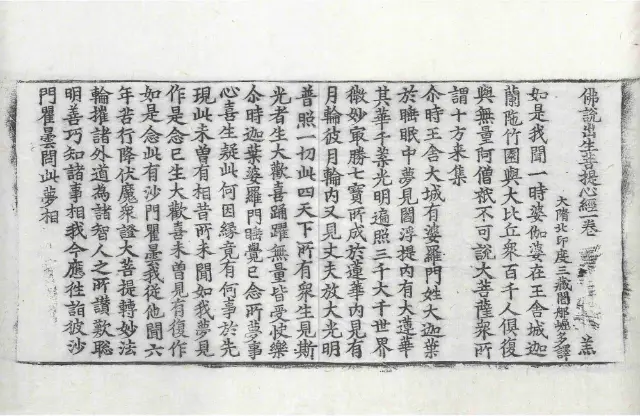 佛說出生菩提心經卷 羔
大隋北印度三藏闍那崛多譯
如是我聞一時婆伽婆在王舍城迦
蘭陁竹園與大比丘衆百千人俱復
與無量阿僧祇不可說大菩薩衆所
謂十方来集
尒時王舍大城有婆羅門姓大迦葉
於睡眠中夢見閻浮提內有大蓮華
其華千葉光明遍照三千大千世界
微妙㝡勝七寶所成於蓮華內見有
月輪彼月輪內又見丈夫放大光明
普照一切此四天下所有衆生見斯
光者生大歡喜踊躍無量皆受快樂
尒時迦葉婆羅門睡覺已念所夢事
心喜生疑此何因緣竟有何事於先
現此未曾有相昔所未聞如我夢見
作是念已生大歡喜未曾見有復作
如是念此有沙門瞿曇我從他聞六
年苦行降伏魔衆證大菩提轉妙法
輪摧諸外道為諸智人之所讚歎聡
明善巧知諸事相我今應往詣彼沙
門瞿曇問此夢相